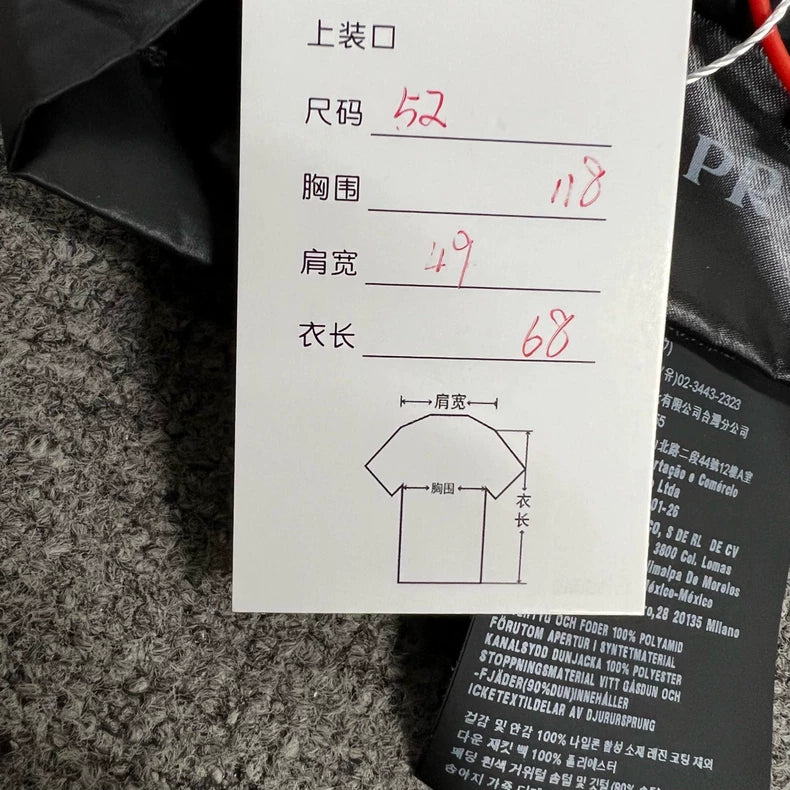 上装口
尺码 52
胸围 118
肩宽 49
衣长 68
肩宽
胸围
衣长
PR
7)
(유)02-3443-2323
有限公司台灣分公司
55
北路二段44號12樓A室
rtação e Comércio
Ltda
01-26
CO, S DE RL DE CV
3800 Col. Lomas
imalpa De Morelos
México-México
ro,28 20135 Milano
OCH FODER 100% POLYAMID
FÖRUTOM APERTUR I SYNTETMATERIAL
KANALSYDD DUNJACKA 100% POLYESTER
STOPPNINGSMATERIAL VITT GÅSDUN OCH
-FJÄDER(90%DUN)INNEHÅLLER
ICKETEXTILDELAR AV DJURURSPRUNG
겉감 및 안감 100% 나일론 합성 소재 레진 코팅 제외
다운 재킷 백 100% 폴리에스터
패딩 흰색 거위털 솜털 및 깃털(90% 솜털)